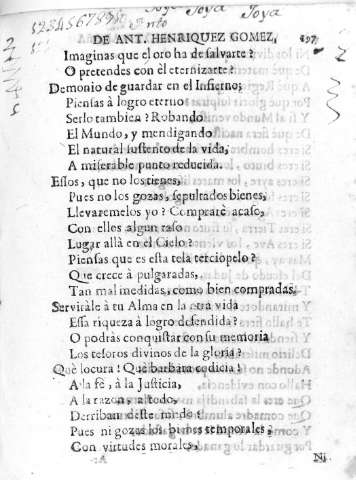 Joya Joya
123456789
Joya
DE ANT. HENRIQUEZ GOMEZ, 497
Imaginas que el oro ha de salvarte?
O pretendes con èl eternizarte?
Demonio de guardar en el Infierno;
Piensas à logro eterno
Serlo tambien? Robando
El Mundo, y mendigando
El natural sustento de la vida,
A miserable punto reducida.
Essos, que no los tienes,
Pues no los gozas, sepultados bienes,
Llevaremelos yo? Comprarè acaso,
Con elles algun raso
Lugar allà en el Cielo?
Piensas que es esta tela terciopelo?
Que crece à pulgaradas,
Tan mal medidas, como bien compradas,
Servirále à tu Alma en la otra vida
Essa riqueza à logro defendida?
O podrás conquistar con su memoria
Los tesoros divinos de la gloria?
Què locura! Què barbara codicia!
A la fé, à la Justicia,
A la razon, a todo,
Derriban deste modo!
Pues ni gozas los bienes temporales,
Con virtudes morales,
Ni